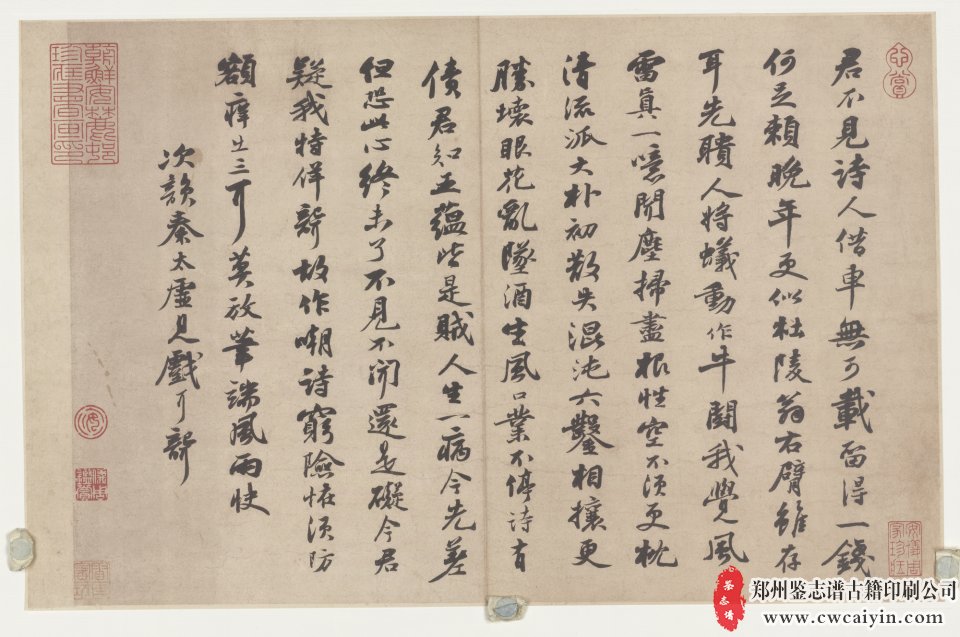 君不見詩人借車無可載留得一錢
何足賴晚年更似杜陵翁右臂雖存
耳先聵人將蟻動作牛鬪我覺風
雷真一噫聞塵掃盡根性空不須更枕
清流派大朴初散失混沌六鑿相攘更
勝壞眼花亂墜酒生風口業不停詩有
債君知五蘊皆是賊人生一病今先差
但恐此心終未了不見不聞還是礙今君
疑我特佯聾故作嘲詩窮險怪須防
額痒出三耳莫放筆端風雨快
次韻秦太虛見戲耳聾
郑州鉴志谱古籍印刷公司
www.cwcaiyin.com
鉴志谱